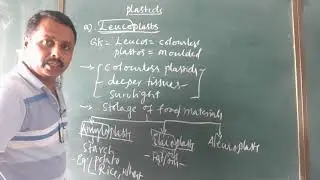 plastids
a) Leucoplasts
GK = Leucos = colourless
plastos = moulded
→ colourless plastids
deeper tissues
sunlight
→ Storage of food materials
Amyloplasts Elaioplasts Aleuroplasts
Starch
Eg: potato
Rice, wheat